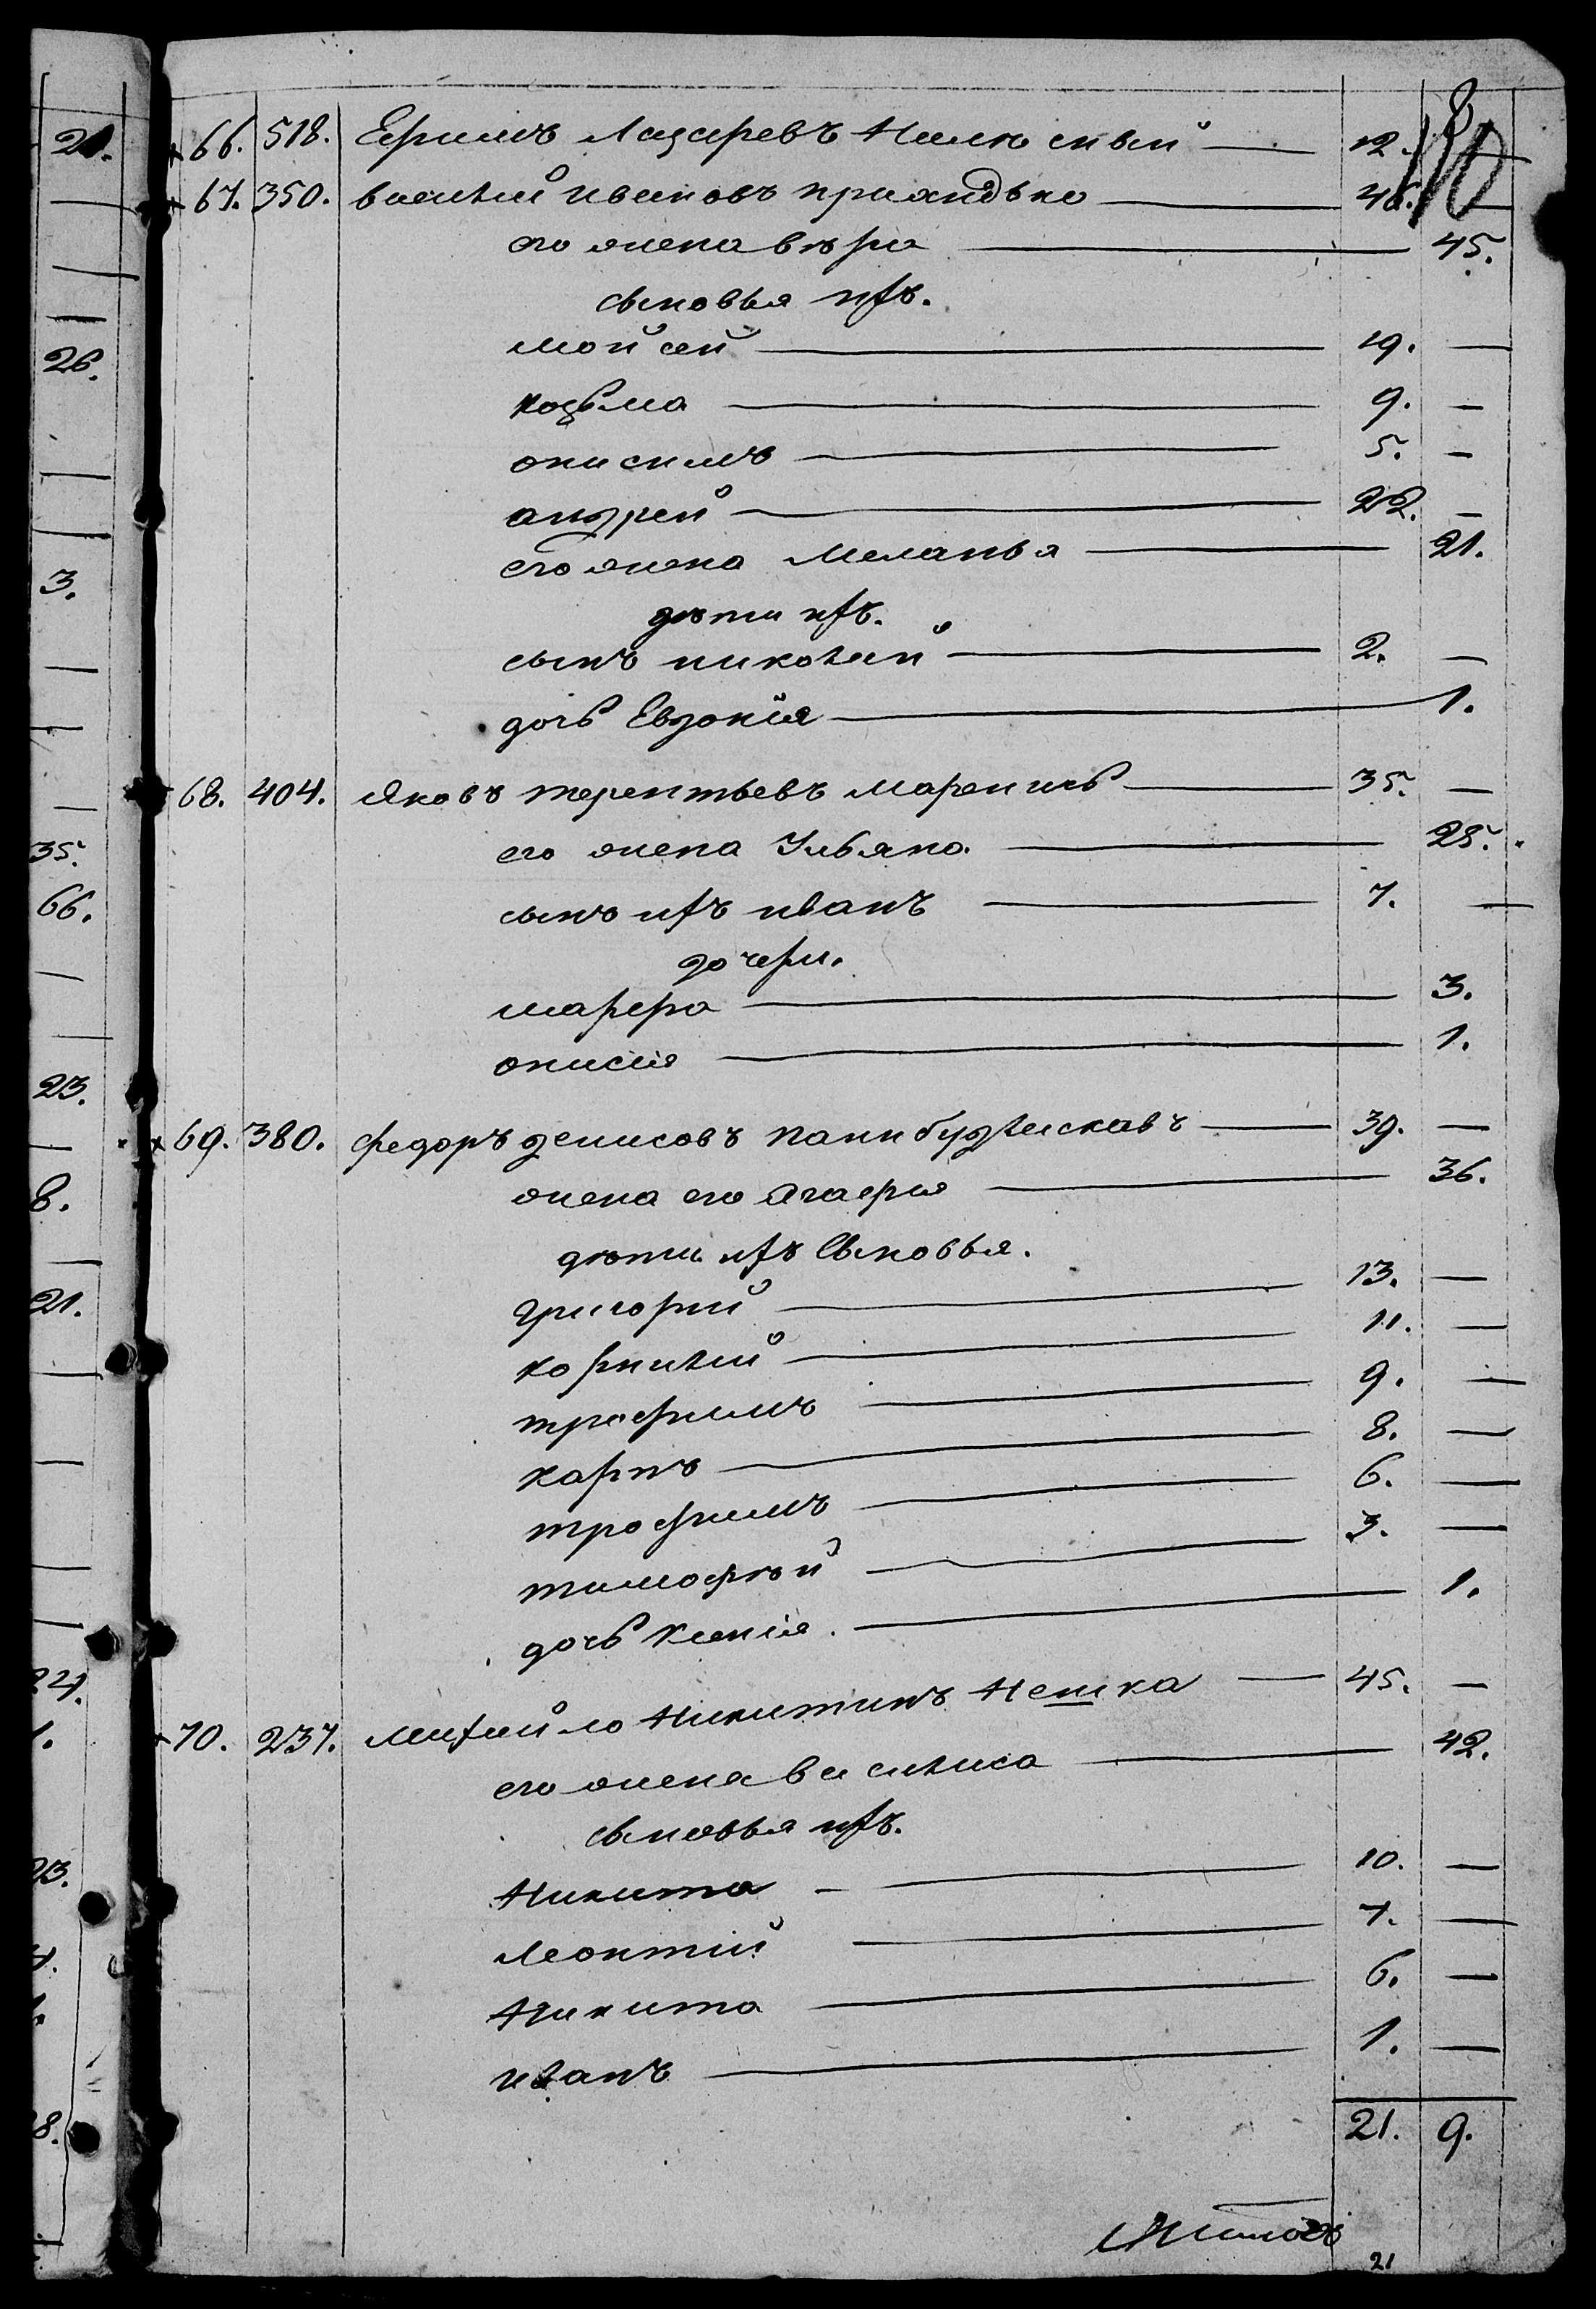 8
10
66. 518. Ефимъ Лазаревъ 12. —
67. 350. василий ивановъ 46. —
его жена вѣра 45.
сыновья ихъ.
мойсей 19. —
козьма 9. —
онисимъ 5. —
андрей 22. —
его жена Меланья 21.
дѣти ихъ.
сынъ николай 2. —
дочь Евдокія 1.
68. 404. Яковъ терентьевъ 35. —
его жена Ульяна 28.
сынъ ихъ иванъ 7. —
дочери.
марфа 3.
анисія 1.
69. 380. федоръ денисовъ 39. —
жена его Агафія 36.
дѣти ихъ Сыновья.
григорий 13. —
корнилий 11. —
трофимъ 9. —
карпъ 8. —
трофимъ 6. —
тимофѣй 3. —
дочь Ксенія. 1.
70. 237. михайло Никитинъ Нешка 45. —
его жена василиса 42.
сыновья ихъ.
Никита 10. —
Леонтій 7. —
Никита 6. —
иванъ 1. —
21. 9.
21
21.
26.
3.
35.
66.
23.
8.
21.
24.
1.
23.
8.